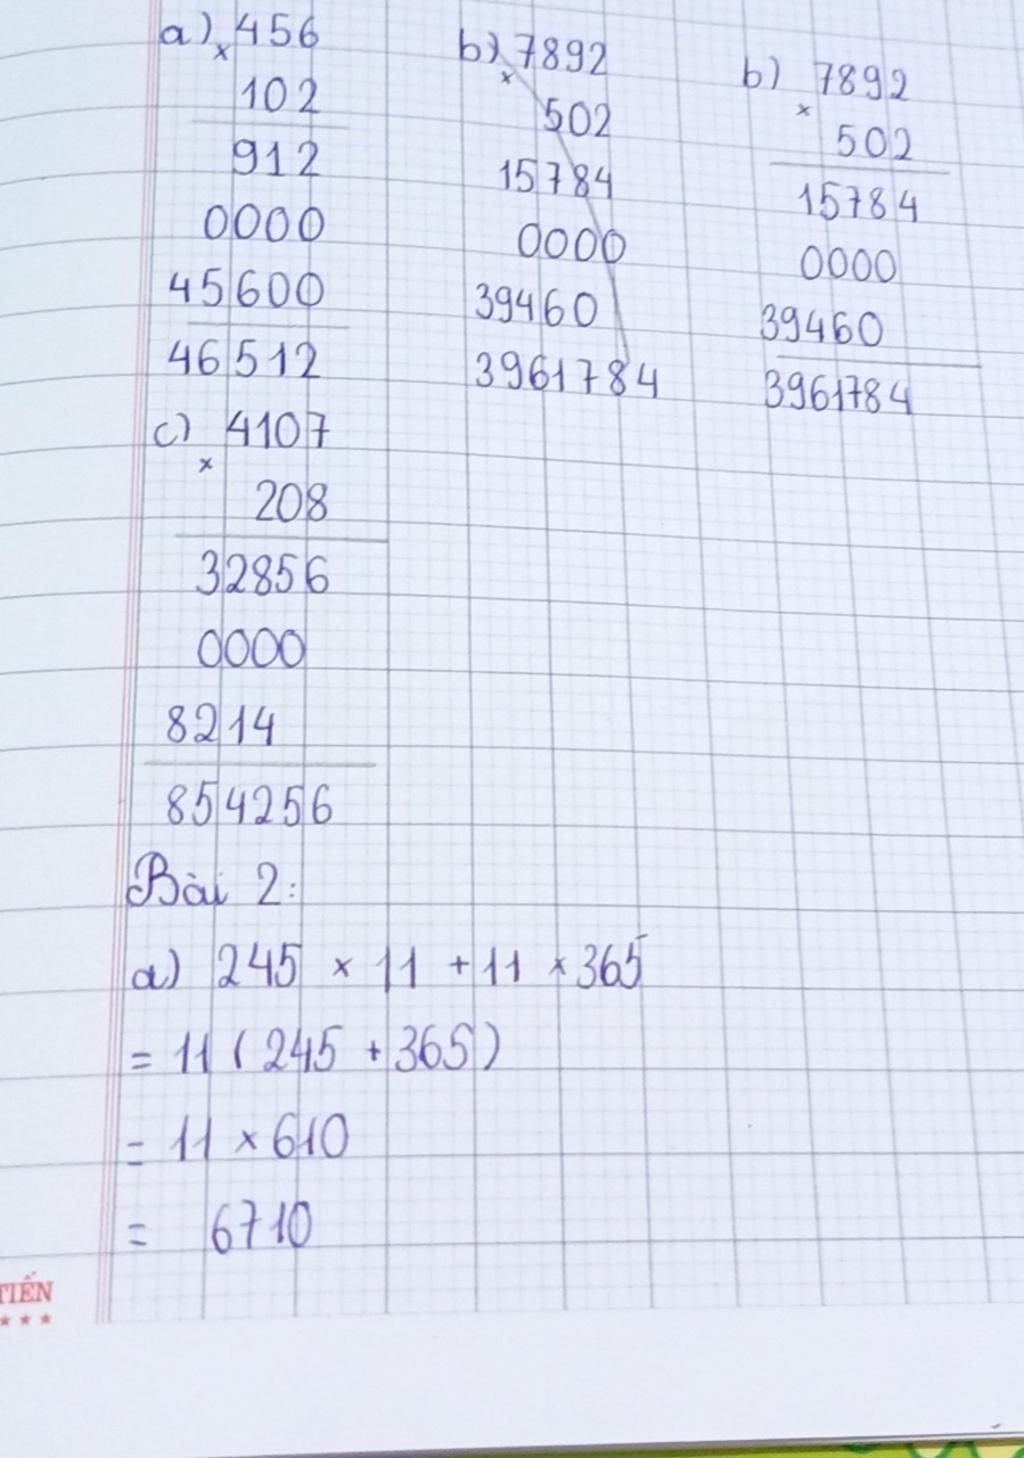 a) × 456
102
912
0000
45600
46512
b) × 7892
502
15784
0000
39460
3961784
b) × 7892
502
15784
0000
39460
3961784
c) × 4107
208
32856
0000
8214
854256
Bài 2:
a) 245 × 11 + 11 × 365
= 11 ( 245 + 365 )
= 11 × 610
= 6710
TIẾN
★ ★ ★